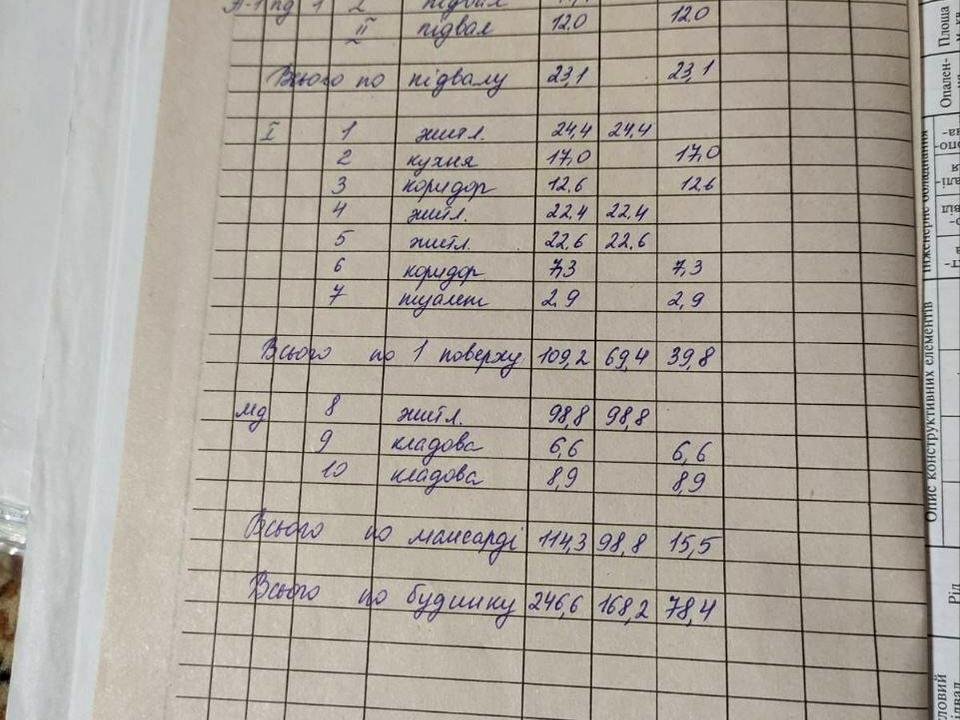 підвал
II підвал 12.0 12.0
Всього по підвалу 23,1 23,1
I 1 житл. 24,4 24,4
2 кухня 17,0 17,0
3 коридор 12.6 12.6
4 житл. 22,4 22,4
5 житл. 22.6 22.6
6 коридор 7,3 7,3
7 туалет 2.9 2,9
Всього по 1 поверху 109,2 69,4 39,8
мд 8 житл. 98,8 98,8
9 кладова 6,6 6,6
10 кладова 8,9 8,9
Всього по мансарді 114,3 98,8 15,5
Всього по будинку 246,6 168,2 78,4
Площа
Опален-
Інженерне обладнання
Опис конструктивних елементів
Рід